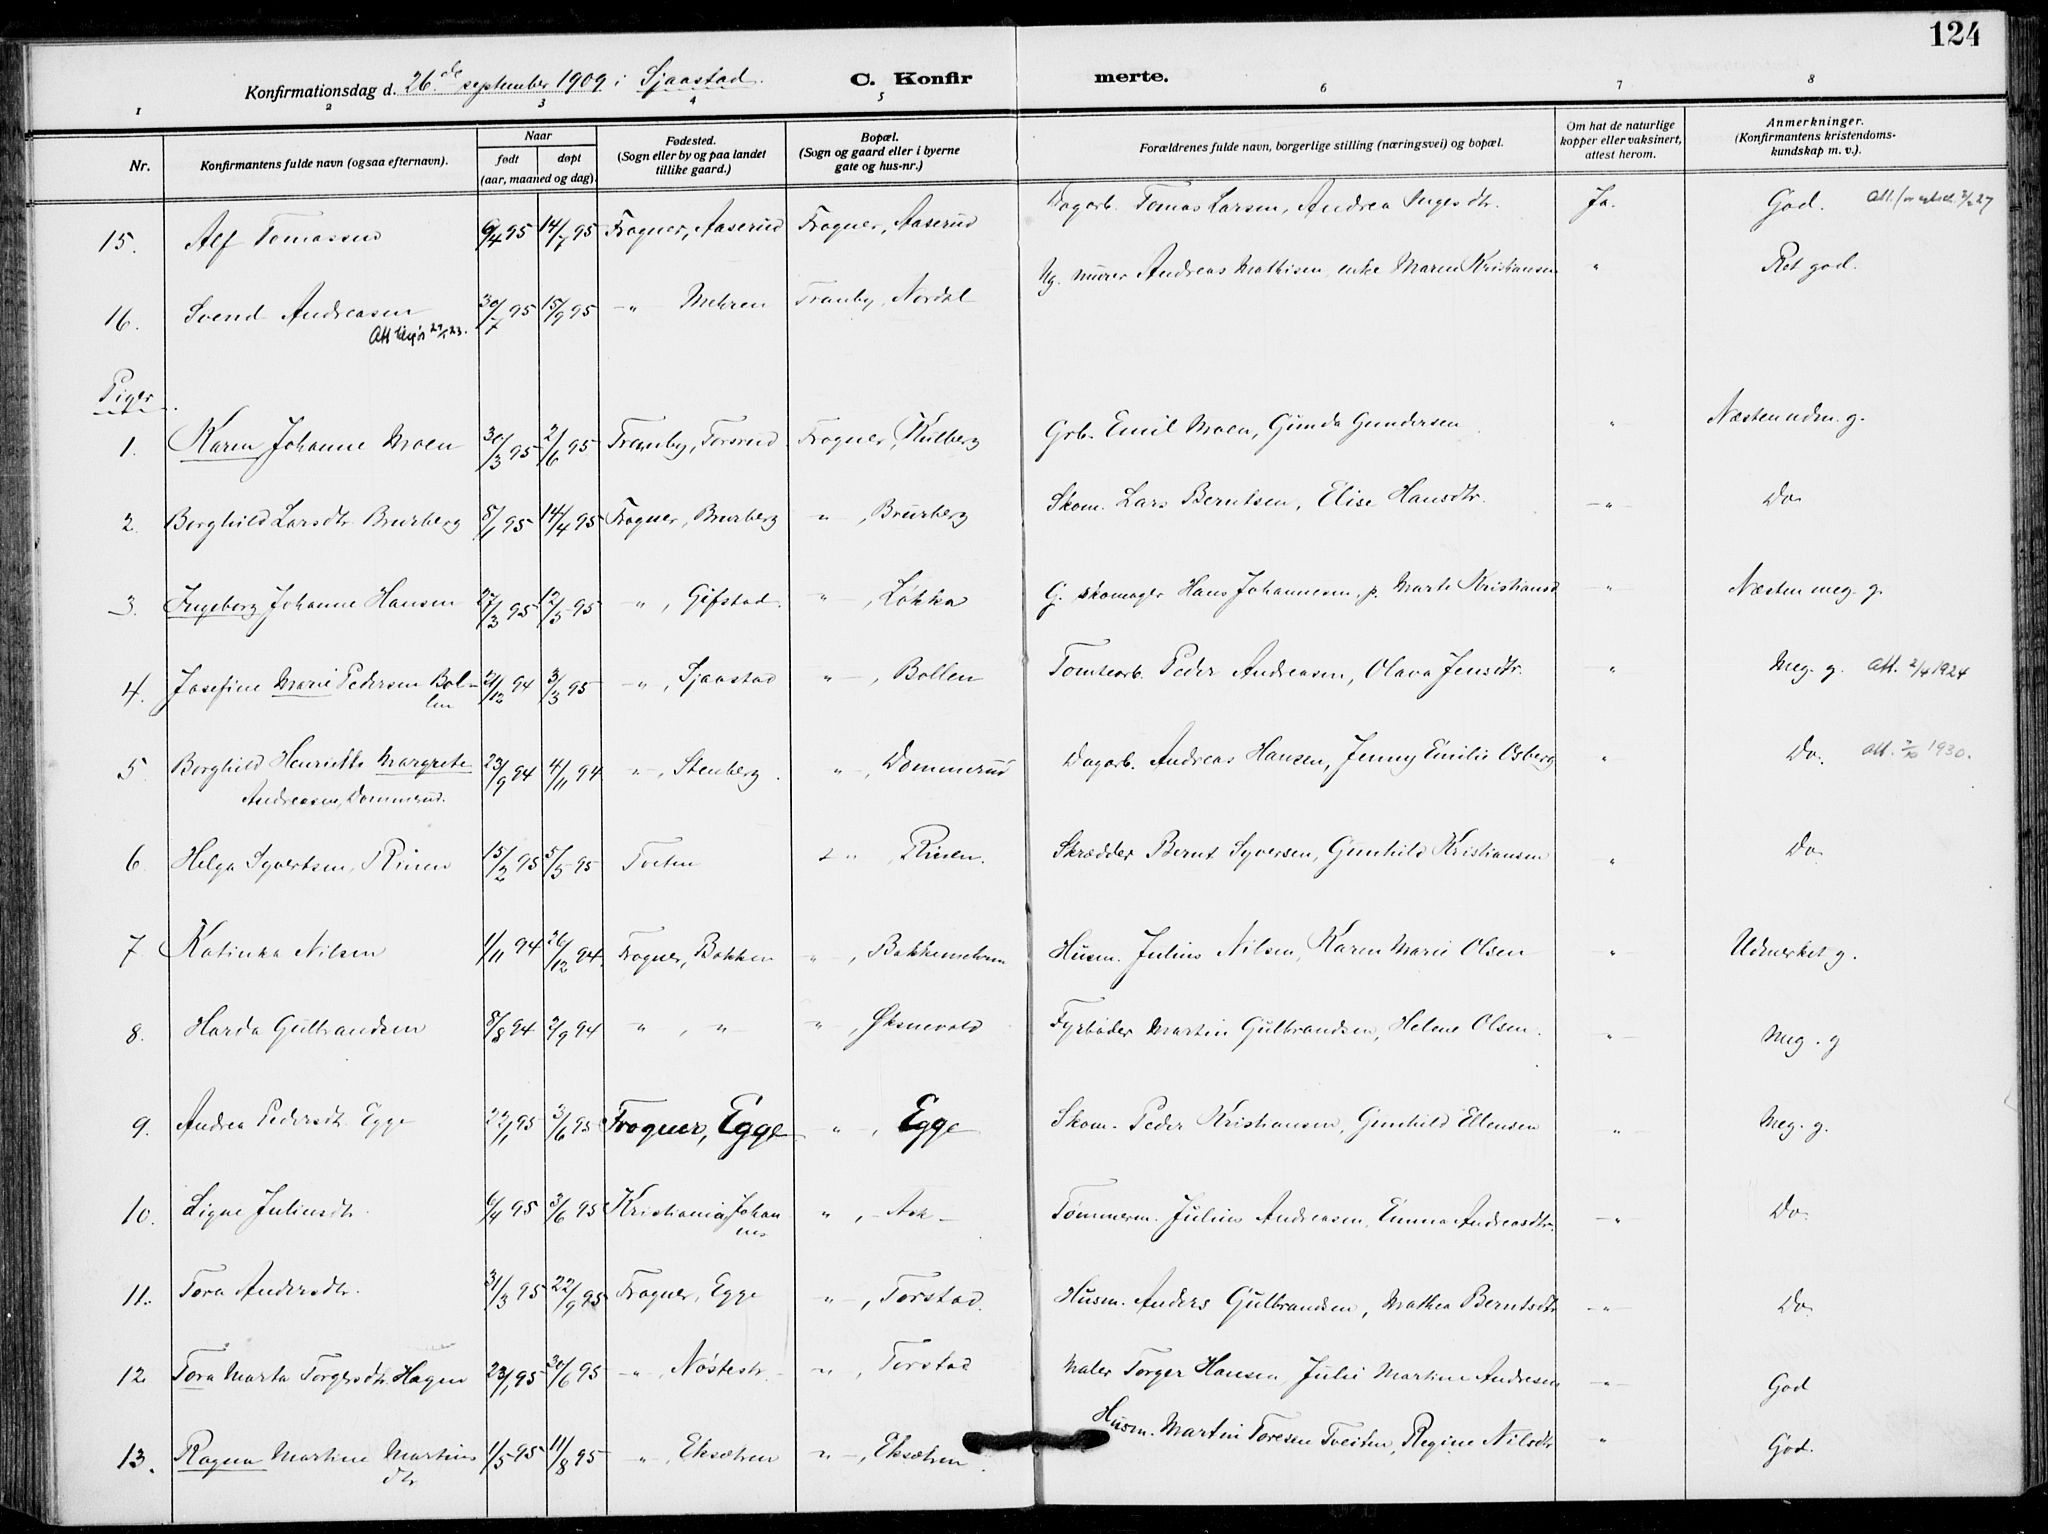 124
Konfirmationsdag d. 26de september 1909 i Sjaastad. C. Konfirmerte.
1 2 3 4 5 6 7 8
Nr. Konfirmantens fulde navn (ogsaa efternavn). Naar født døpt (aar, maaned og dag). Fødested. (Sogn eller by og paa landet tillike gaard.) Bopæl. (Sogn og gaard eller i byerne gate og hus-nr.) Forældrenes fulde navn, borgerlige stilling (næringsvei) og bopæl. Om hat de naturlige kopper eller vaksinert, attest herom. Anmerkninger. (Konfirmantens kristendoms-kundskap m. v.).
15. Alf Tomassen 6/4 95 14/7 95 Frogner, Aaserud Frogner, Aaserud Dagarb. Tomas Larsen, Andrea Ingesdtr. Ja. God. Att.
16. Svend Andreasen 30/7 95 15/9 95 -"- Mehren Tranby, Nordal Ug. murer Andreas Mathisen, enke Maren Kristiansen " Ret god.
Att
Piger.
1. Karen Johanne Moen 30/3 95 2/6 95 Tranby, Torsrud Frogner, Kulberg Grb. Emil Moen, Gunda Gundersen " Næsten udm. g.
2. Borghild Larsdtr. Brurberg 8/1 95 14/4 95 Frogner, Brurberg " , Brurberg Skom. Lars Berntsen, Elise Hansdtr. -"- Do
3. Ingeborg Johanne Hansen 27/3 95 12/5 95 -"-, Gifstad. "-, Løkka G. skomager Hans Johannesen, p. Marte Kristiansd " Næsten meg. g.
4. Josefine Marie Pedersen Bollen 21/12 94 3/3 95 -"-, Sjaastad "-, Bollen Tomtearb. Peder Andreasen, Olava Jensdtr. " Meg. g. Att. 2/4 1924
5. Borghild Henriette Margrete 23/9 94 4/11 94 "-, Stenberg. "-, Dommerud Dagarb. Andreas Hansen, Jenny Emilie Osberg " Do. att. 1930.
Andreasen, Dommerud.
6. Helga Syvertsen, Rinen 15/2 95 5/5 95 Tveten " , Rinen. Skrædder Bernt Syversen, Gunhild Kristiansen " Do
7. Katinka Nilsen 1/11 94 26/12 94. Frogner, Bakken "-, Bakkenehvam Husm. Julius Nilsen, Karen Marie Olsen " Udmerket g.
8. Harda Gulbrandsen 8/8 94 2/9 94 " , " " , Øksnevold Fyrbøder Martin Gulbrandsen, Helene Olsen. -"- Meg. g
9. Andrea Pedersdtr. Egge 22/1 95 3/6 95 Frogner, Egge "-, Egge Skom. Peder Kristiansen, Gunhild Ellensen " Meg. g.
10. Signe Juliusdtr. 6/4 95 3/6 95 Kristiania, Johannes " , Ask Tømmerm. Julius Andreasen, Emma Andreasdtr. -"- Do
11. Tora Andersdtr. 31/3 95 22/9 95 Frogner, Egge "-, Torstad. Husm. Anders Gulbrandsen, Mathea Berntsdtr -"- Do
12. Tora Marta Torgersdtr. Hagen 23/1 95 30/6 95 -"-, Nøstestr. "-, Torstad Maler Torger Hansen, Julie Martine Andresen -"- God
13. Ragna Martine Martins dtr 1/5 95 11/8 95 -"-, Eksætren "-, Eksætren. Husm. Martin Toresen Tveiten, Regine Nilsdtr " God.